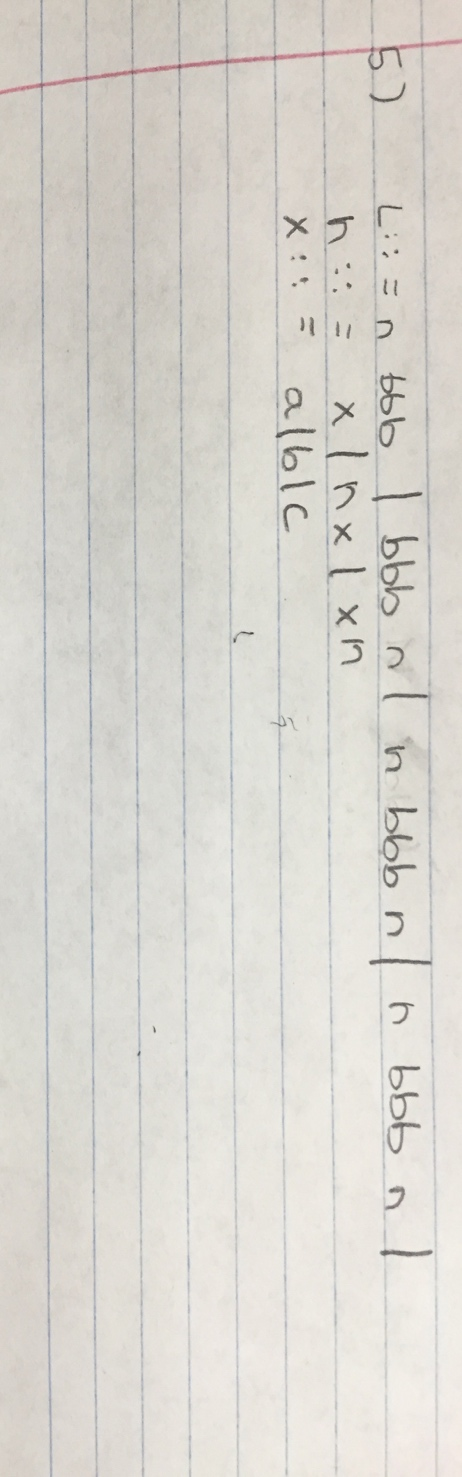 5) L::= n bbb | bbb n | n bbb n | n bbb n |
n ::= x | n x | x n
x ::= a | b | c